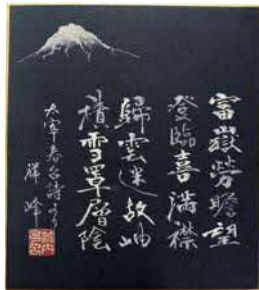 富嶽勞瞻望
登臨喜滿襟
歸雲迷故岫
積雪罩層陰
太宰春台詩
祥峰